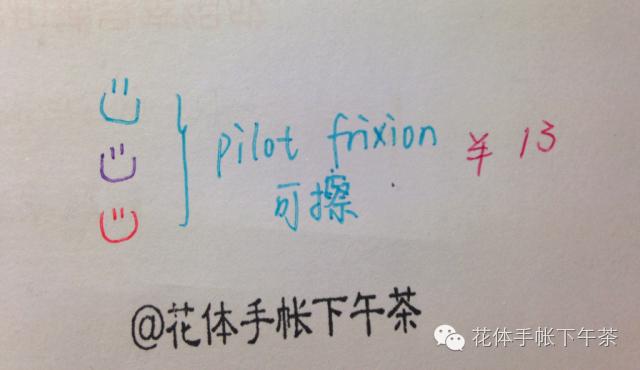 pilot frixion ¥ 13
可擦
@花体手帐下午茶
花体手帐下午茶